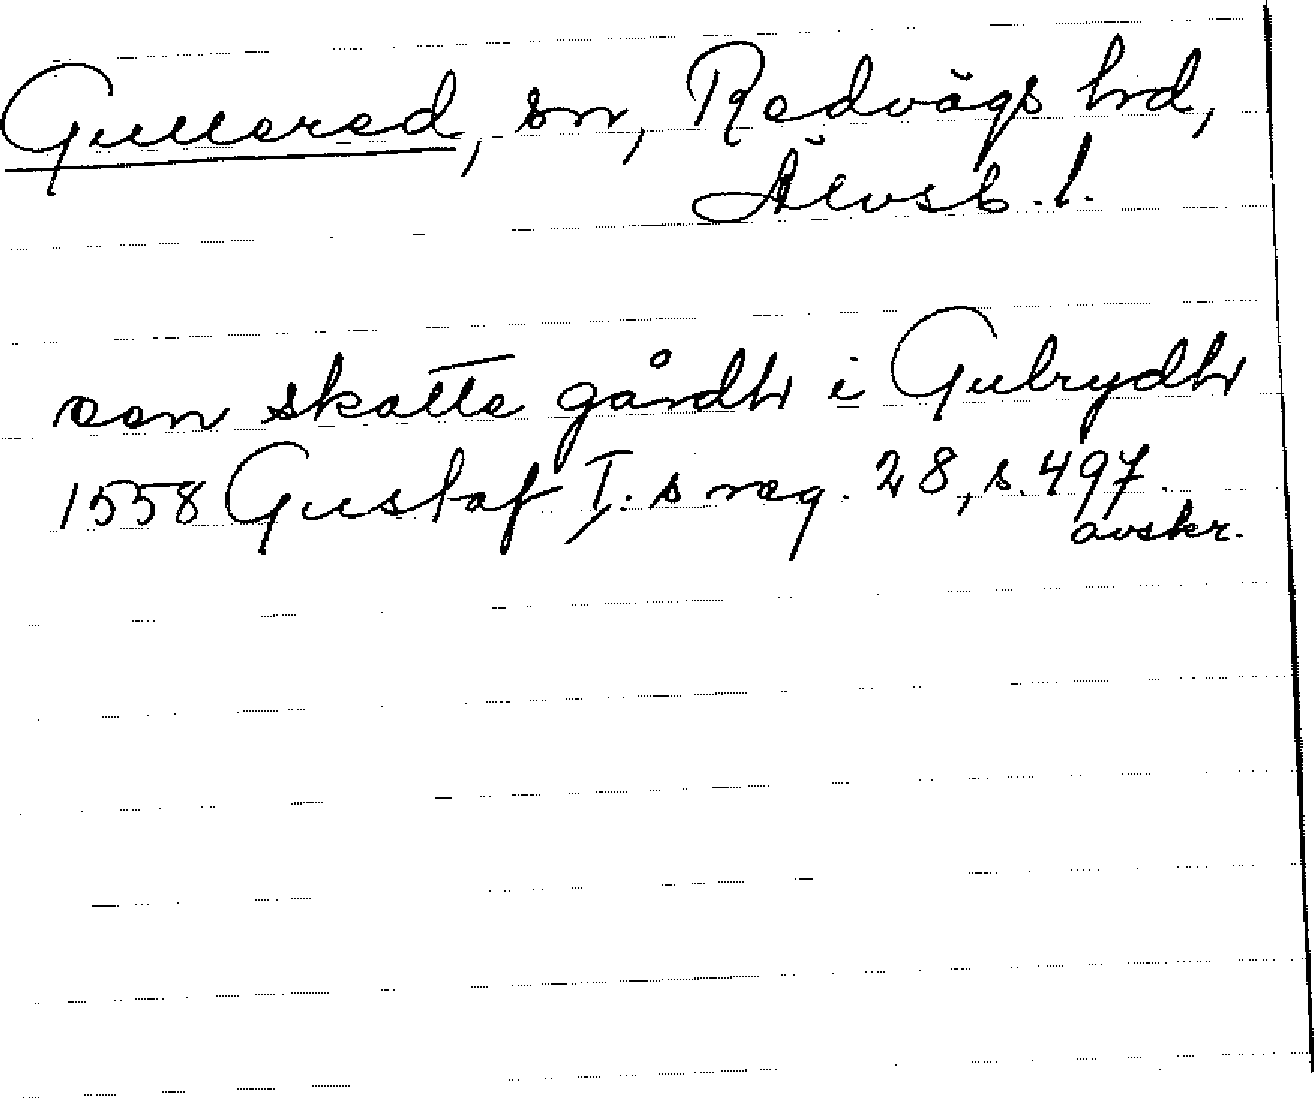 Gullered, sn, Redvägs hd,
Älvsb. l.
een skatte gårdh i Gulrydh
1558 Gustaf I:s reg. 28, s. 497.
avskr.